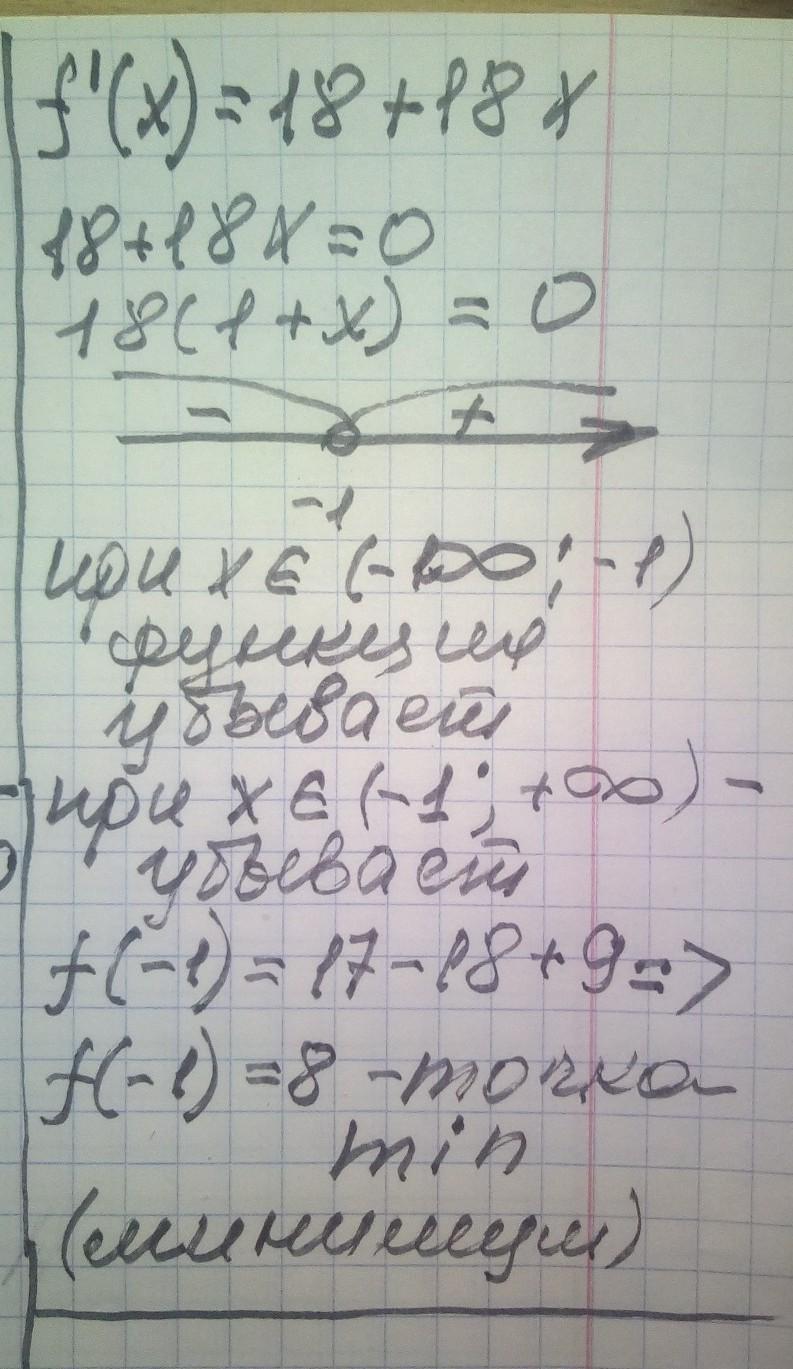 f'(x) = 18 + 18x
18 + 18x = 0
18(1 + x) = 0
- +
-1
при x ∈ (-∞; -1)
функция
убывает
при x ∈ (-1; +∞) -
убывает
f(-1) = 17 - 18 + 9 =>
f(-1) = 8 - точка
min
(минимум)